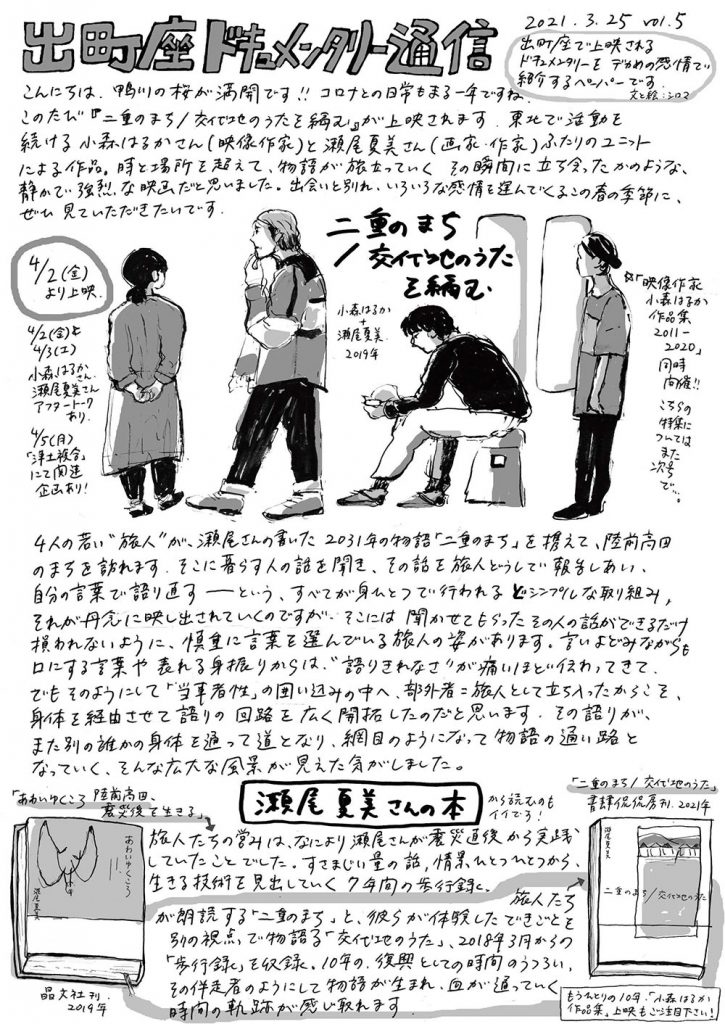 出町座ドキュメンタリー通信
2021.3.25 vol.5
出町座で上映される
ドキュメンタリーを デカめの感情で
紹介するペーパーです
文と絵:シロマ
こんにちは。鴨川の桜が満開です!! コロナとの日常もまる一年ですね。
このたび『二重のまち/交代地のうたを編む』が上映されます。東北で活動を
続ける 小森はるかさん(映像作家)と瀬尾夏美さん(画家・作家)ふたりのユニット
による作品。時と場所を超えて、物語が旅立っていく その瞬間に立ち会ったかのような、
静かで強烈な映画だと思いました。出会いと別れ、いろいろな感情を運んでくるこの春の季節に、
ぜひ見ていただきたいです。
4/2(金)
より上映。
4/2(金)と
4/3(土)
小森はるかさん、
瀬尾夏美さん
アフタートーク
あり。
4/5(月)
「浄土複合」
にて関連
企画あり!
二重のまち
/交代地のうた
を編む
小森はるか
+
瀬尾夏美
2019年
「映像作家
小森はるか
作品集
2011-
2020」
同時
開催!!
こちらの
特集に
ついては
また
次号
で…。
4人の若い“旅人”が、瀬尾さんの書いた2031年の物語「二重のまち」を携えて、陸前高田
のまちを訪れます。そこに暮らす人の話を聞き、その話を旅人どうしで報告しあい、
自分の言葉で語り直す ── という、すべてが身ひとつで行われる どシンプルな取り組み。
それが丹念に映し出されていくのですが、そこには 聞かせてもらったその人の話ができるだけ
損われないように、慎重に言葉を選んでいる旅人の姿があります。言いよどみながらも
口にする言葉や 表れる身振りからは、“語りきれなさ”が痛いほど伝わってきて、
でもそのようにして「当事者性」の囲い込みの中へ、部外者=旅人として立ち入ったからこそ、
身体を経由させて語りの回路を広く開拓したのだと思います。その語りが、
また別の誰かの身体を通って道となり、網目のようになって物語の通い路と
なっていく、そんな広大な風景が見えた気がしました。
瀬尾夏美さんの本
から読むのも
イイぞう!
「あわいゆくころ 陸前高田、
震災後を生きる」
あわいゆくころ
瀬尾夏美
晶文社刊
2019年
旅人たちの営みは、なにより瀬尾さんが震災直後から実践
していたことでした。すさまじい量の話、情景、ひとつひとつから、
生きる技術を見出していく7年間の歩行録と、
「二重のまち/交代地のうた」
書肆侃侃房刊 2021年
瀬尾夏美
二重のまち/交代地のうた
旅人たち
が朗読する「二重のまち」と、彼らが体験したできごとを
別の視点で物語る「交代地のうた」、2018年3月からの
「歩行録」を収録。10年の、復興としての時間のうつろい、
その伴走者のようにして物語が生まれ、血が通っていく
時間の軌跡が感じ取れます。
もうひとつの10年、「小森はるか
作品集」上映もご注目下さい!